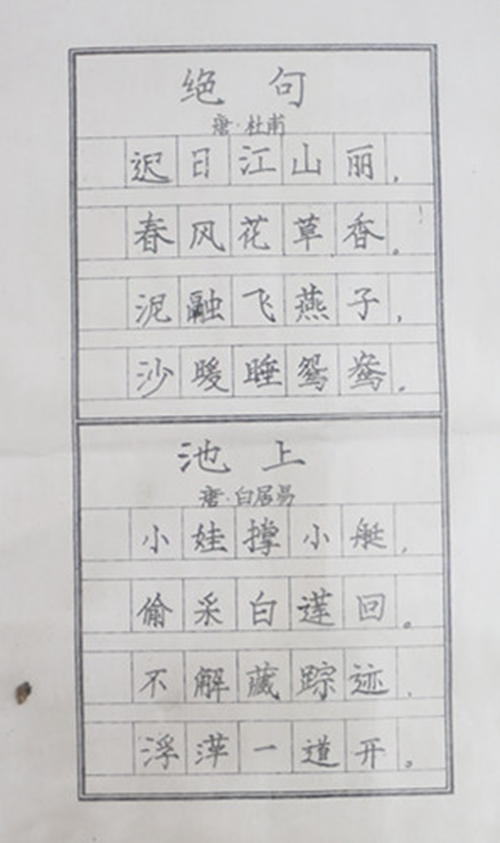 绝句
唐·杜甫
迟日江山丽，
春风花草香。
泥融飞燕子，
沙暖睡鸳鸯。
池上
唐·白居易
小娃撑小艇，
偷采白莲回。
不解藏踪迹，
浮萍一道开。